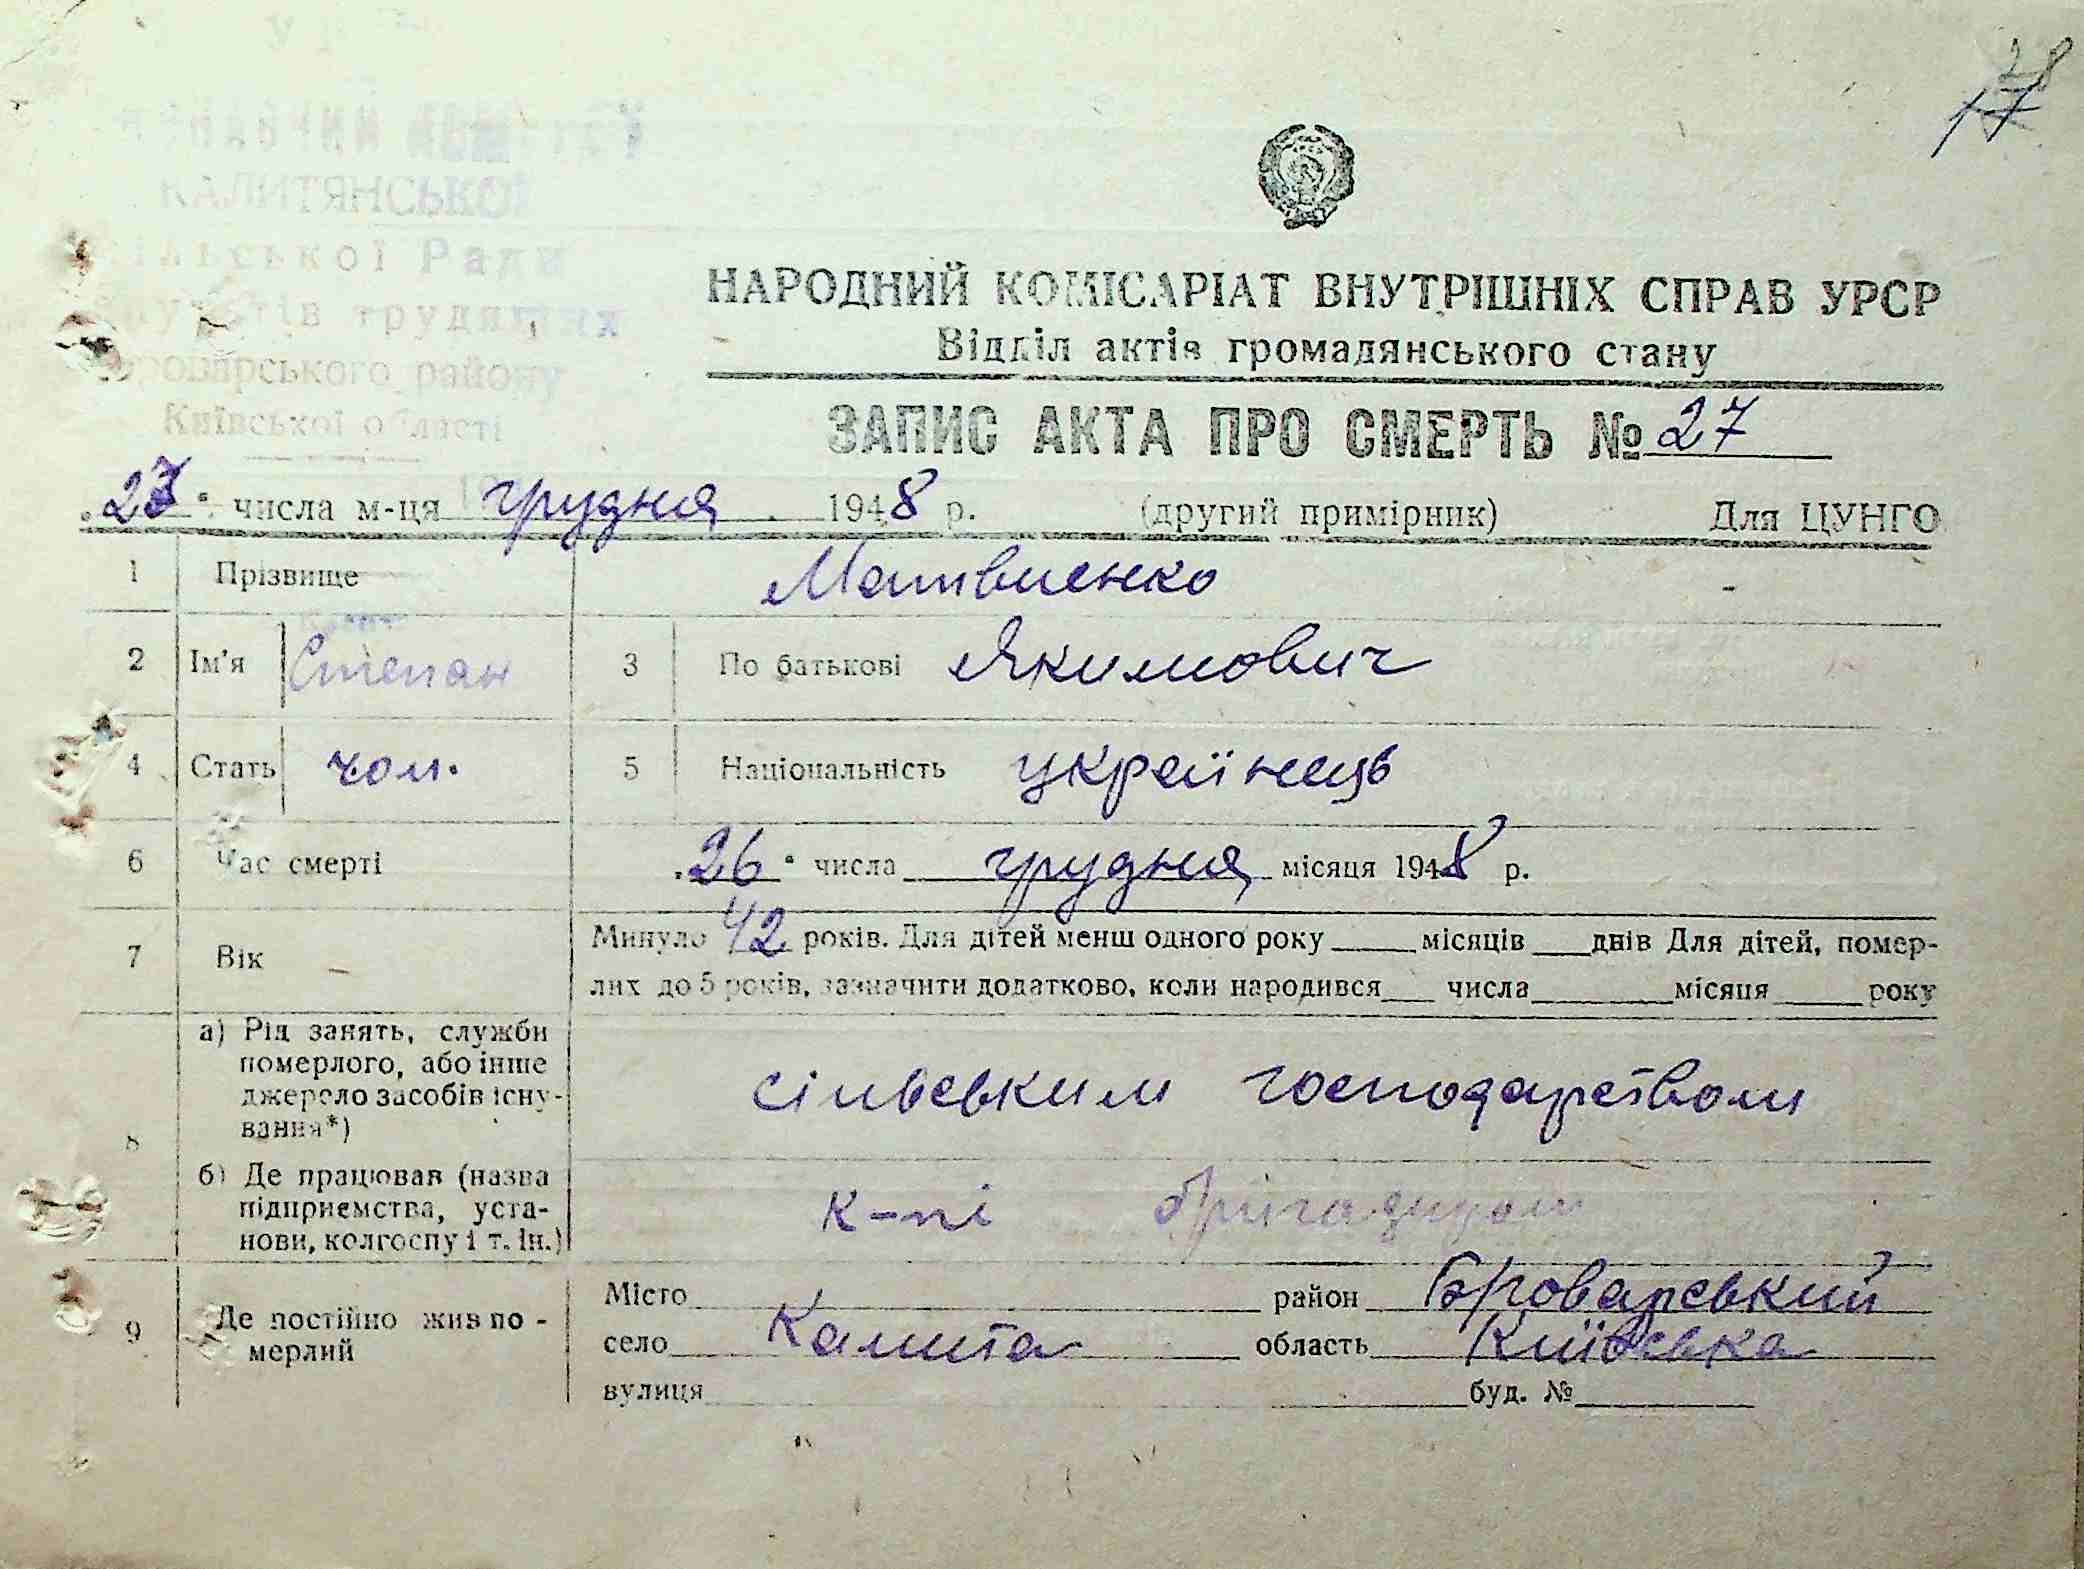 28
17
КАЛИТЯНСЬКОЇ
Ради
трудящих
району
Київської області
НАРОДНИЙ КОМІСАРІАТ ВНУТРІШНІХ СПРАВ УРСР
Відділ актів громадянського стану
ЗАПИС АКТА ПРО СМЕРТЬ № 27
"27" числа м-ця грудня 1948 р. (другий примірник) Для ЦУНГО
1 Прізвище Матвиенко
2 Ім'я Степан 3 По батькові Якимович
4 Стать чол. 5 Національність українець
6 Час смерті "26" числа грудня місяця 1948 р.
7 Вік Минуло 42 років. Для дітей менш одного року ____ місяців ___ днів Для дітей, помер-
лих до 5 років, зазначити додатково, коли народився ___ числа ____ місяця ____ року
8 а) Рід занять, служби
померлого, або інше
джерело засобів існу-
вання*)
сільським господарством
б) Де працював (назва
підприємства, уста-
нови, колгоспу і т. ін.)
к-пі бригадиром
9 Де постійно жив по-
мерлий
Місто ____ район Броварський
село Калита область Київська
вулиця ____ буд. № ____